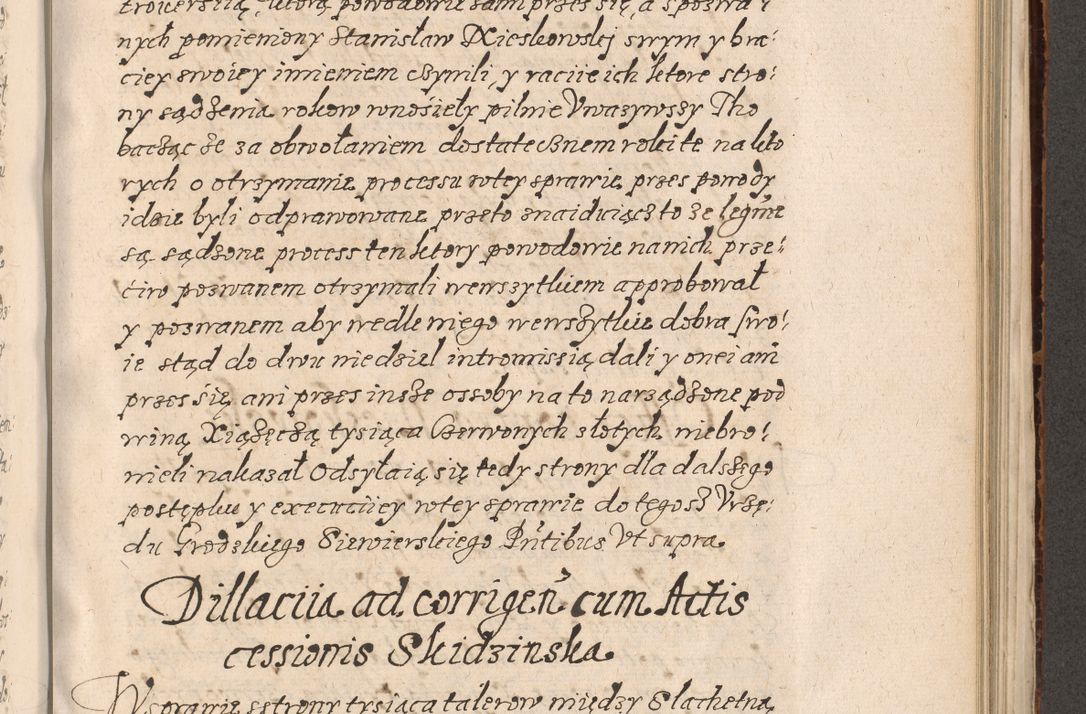 troversiią, którą powodowie sami przes się, a spozwa:
nych pomiemiony Stanisław Dzieskowskj swym y bra:
ciey swoiey imieniem czynili, y raciie ich ktore stro:
ny sądzenia rokow wnosieły pilnie Vwazywszy Tho
bacząc ze za obwołaniem dostatecznem rokite na kto
rych o otrzymanie processu wtey sprawie przes powody
idzie byli odprawowane przeto znaiduiącz to ze legme
są sądzone process ten ktory powodowie na nich prze:
ciw pozwanem otrzymali wewszytkiem approbował
y pozwanem aby wedle niego wewszytkie dobra swo:
ie stąd do dwu niedziel intromissią dali y onei ani
przes się ani przes insze ossoby na to narządzone pod
winą Xiążęczą tysiąca Czerwonych złotych niebro:
nieli nakazał Odsyłaią się tedy strony dla dalszego
postępku y execuciiey wtey sprawie do tegosz Vrzę:
du Grodskiego Siewierskiego Pntibus Vt supra
Dillaciia ad corrigen cum Actis
cessionis Skidzinska
W sprawie zstrony tysiąca talerow między Slachetną